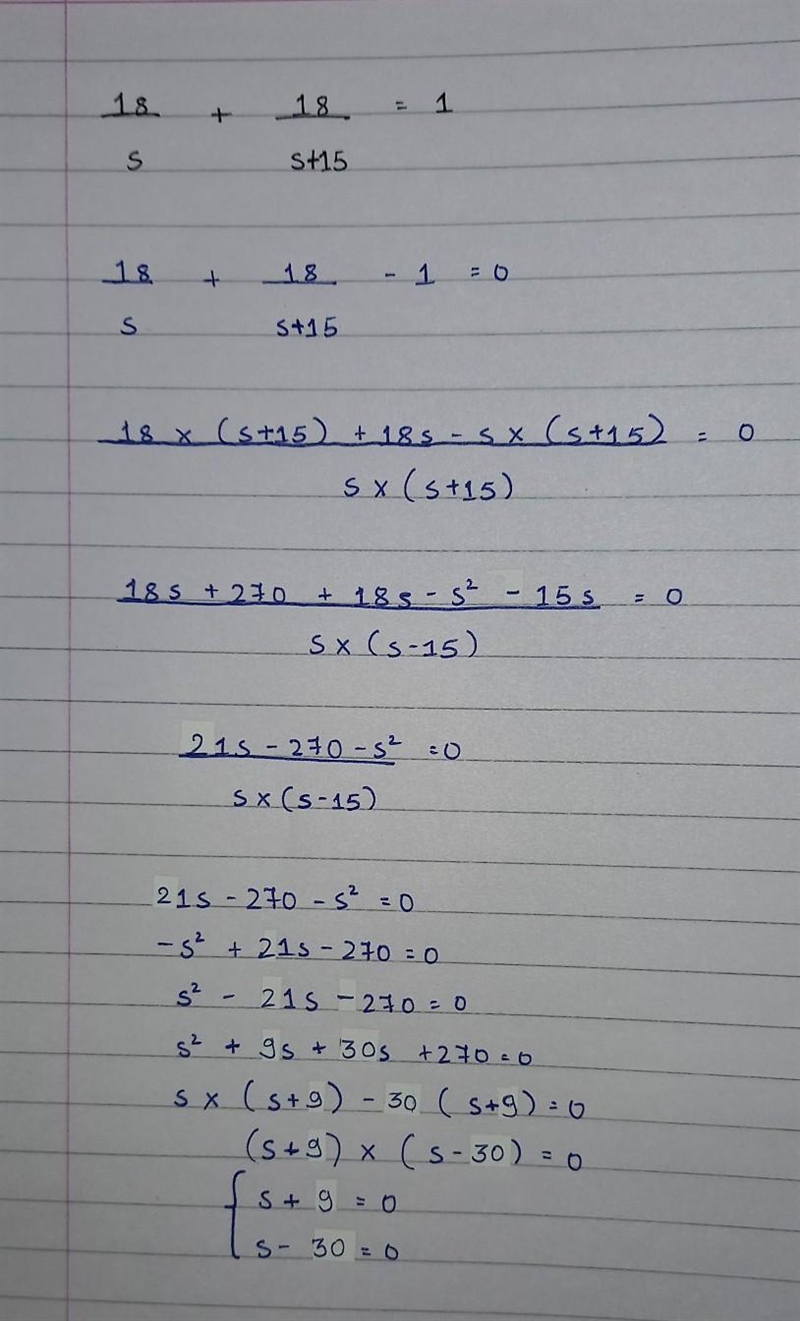 18/s + 18/s+15 = 1
18/s + 18/s+15 - 1 = 0
18 × (s+15) + 18s - s × (s+15) / s × (s+15) = 0
18s + 270 + 18s - s² - 15s / s × (s-15) = 0
21s - 270 - s² / s × (s-15) = 0
21s - 270 - s² = 0
-s² + 21s - 270 = 0
s² - 21s - 270 = 0
s² + 9s + 30s + 270 = 0
s × (s+9) - 30 (s+9) = 0
(s+9) × (s-30) = 0
{ s + 9 = 0
s - 30 = 0